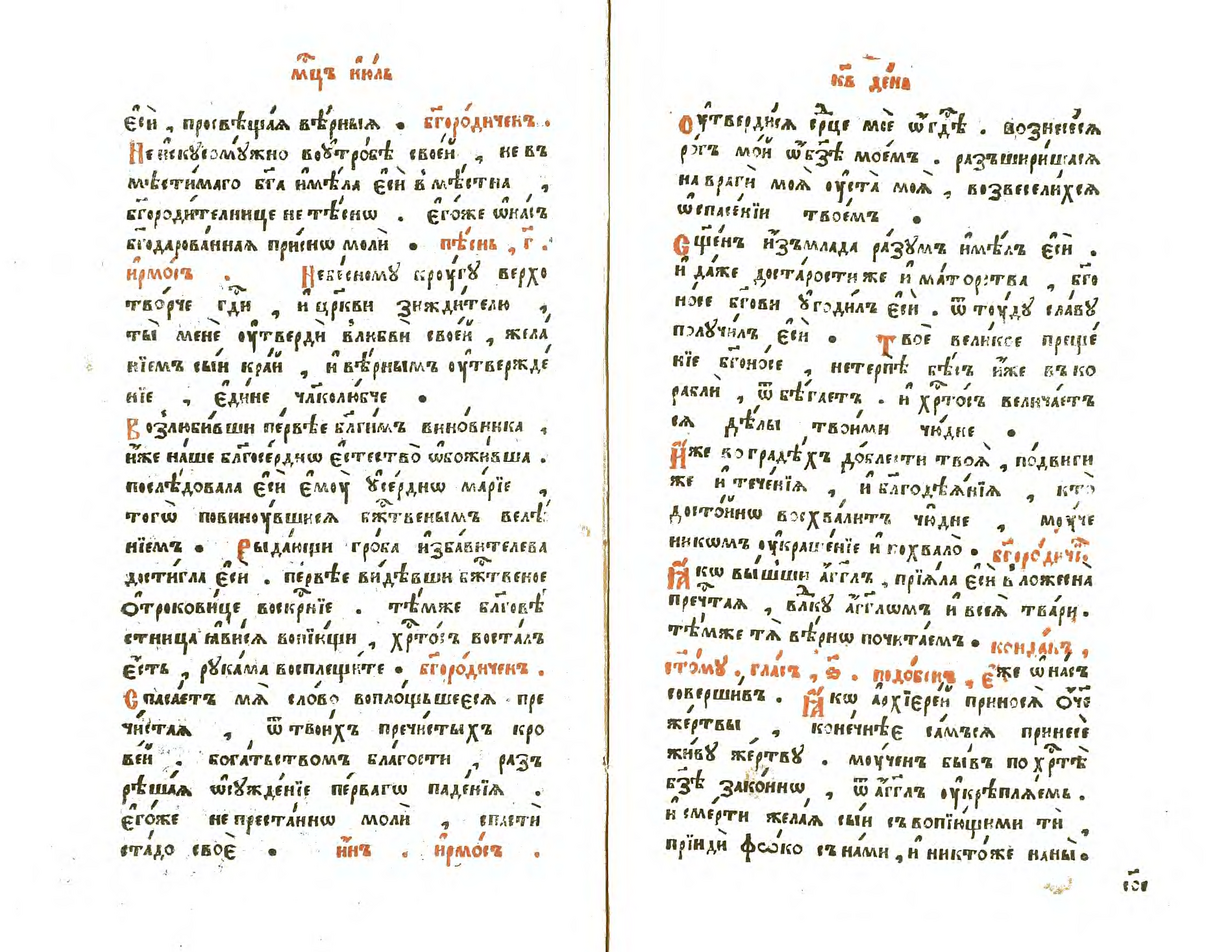 мц҃ъ і҆ю́ль
є҆сѝ , просвѣща́я вѣ́рныя . бг҃оро́диченъ .
Неискꙋсомꙋ́жно воꙋтро́бѣ свое́й , не въ
мѣсти́маго бг҃а и҆мѣ́ла є҆сѝ вмѣ́стна ,
бг҃ороди́телнице не тѣ́снѡ . є҆го́же ѡ҆на́съ
бг҃одарова́нная при́снѡ молѝ . пѣ́снь , г҃ .
і҆рмо́съ . Небе́сномꙋ крꙋ́гꙋ верхо
тво́рче гд҇и , и҆ цр҃кви зижди́телю ,
ты̀ менѐ ᲂу҆твердѝ влюбвѝ свое́й , жела
нїемъ сы́и кра́й , и҆ вѣ́рнымъ ᲂу҆твержде́
нїе , є҆ди́не чл҃колю́бче .
Возлюби́вши пе́рвѣе бл҃ги́мъ вино́вника ,
и҆́же на́ше бл҃госе́рдїѡ є҆стество̀ ѡ҆божи́вша .
послѣ́довала є҆сѝ є҆мꙋ̀ ᲂу҆се́рднѡ ма́рїе ,
тогѡ̀ повинꙋ́вшися бж҃твенымъ велѣ́
нїемъ . Рыда́ющи гро́ба и҆зба́вителева
дости́гла є҆сѝ . пе́рвѣе ви́дѣвши бж҃твеное
ѻ҆трокови́це воскр҃нїе . тѣ́мже бл҃говѣ́
стница ꙗ҆ви́ся вопїю́щи , хр҇то́съ воста́лъ
є҆́сть , рꙋка́ма восплещи́те . бг҃оро́диченъ .
Спаса́етъ мѧ̀ сло́во воплощьшееся пре
чи́стая , ѿ твои́хъ пречи́стыхъ кро
ве́й . бога́тьствомъ бла́гости , разъ
рѣша́я ѡ҆сꙋжде́нїе пе́рвагѡ паде́нїя .
є҆го́же непреста́ннѡ молѝ , спастѝ
ста́до своѐ . и҆н҃ъ . і҆рмо́съ .
к҃в де́нь
Оу҆тверди́ся ср҃це моѐ ѡ҆гд҇ѣ . вознесе́ся
ро́гъ мо́й ѡ҆бз҃ѣ мое́мъ . разъшири́шася
на врагѝ моѧ̀ ᲂу҆ста̀ моѧ̀ , возвесели́хся
ѡ҆спасе́нїи твое́мъ .
Сщ҃е́нъ и҆зъмла́да ра́зꙋмъ и҆мѣ́лъ є҆сѝ .
и҆ да́же доста́рости же и҆ ма́торства , бг҃о
но́се бг҃ови ᲂу҆годи́лъ є҆сѝ . ѿтꙋ́дꙋ сла́вꙋ
полꙋчи́лъ є҆сѝ . Твоѐ вели́кое преще́
нїе бг҃оно́се , нетерпѧ̀ бѣ́съ и҆́же въ ко
раблѝ , ѿбѣга́етъ . и҆ хр҇то́съ велича́етъ
ся дѣ́лы твои́ми чю́дне .
И҆́же во градѣ́хъ до́блести твоѧ̀ , по́двиги
же и҆ тече́нїя , и҆ бл҃годѣѧ́нїя , кто̀
досто́йнѡ восхва́литъ чю́дне , мꙋ́че
никѡмъ ᲂу҆краше́нїе и҆ похвало̀ . бг҃оро́диче҇ .
Ꙗ҆́кѡ вы́шши а҆́гг҃лъ , прїѧ́ла є҆сѝ в ложесна̀
преч҇тая , вл҃кꙋ а҆́гг҃лѡмъ и҆ всеѧ̀ тва́ри .
тѣ́мже тѧ̀ вѣ́рнѡ почита́емъ . конда́къ ,
ст҃о́мꙋ . гла́съ , д҃ . подо́бенъ , Е҆́же ѡ҆на́съ
соверши́въ . Ꙗ҆́кѡ а҆рхїере́й приносѧ̀ ѻ҆́ч҃е
же́ртвы , коне́чнѣе са́мъся принесѐ
жи́вꙋ же́ртвꙋ . мꙋ́ченъ бы́въ по хр҇тѣ̀
бз҃ѣ зако́ннѡ , ѿ а҆́гг҃лъ ᲂу҆крѣплѧ́емь .
и҆ сме́рти жела́я сы́и съ вопїю́щими тѝ ,
прїидѝ фѡ́ко съ на́ми , и҆ никто́же наны̀ .